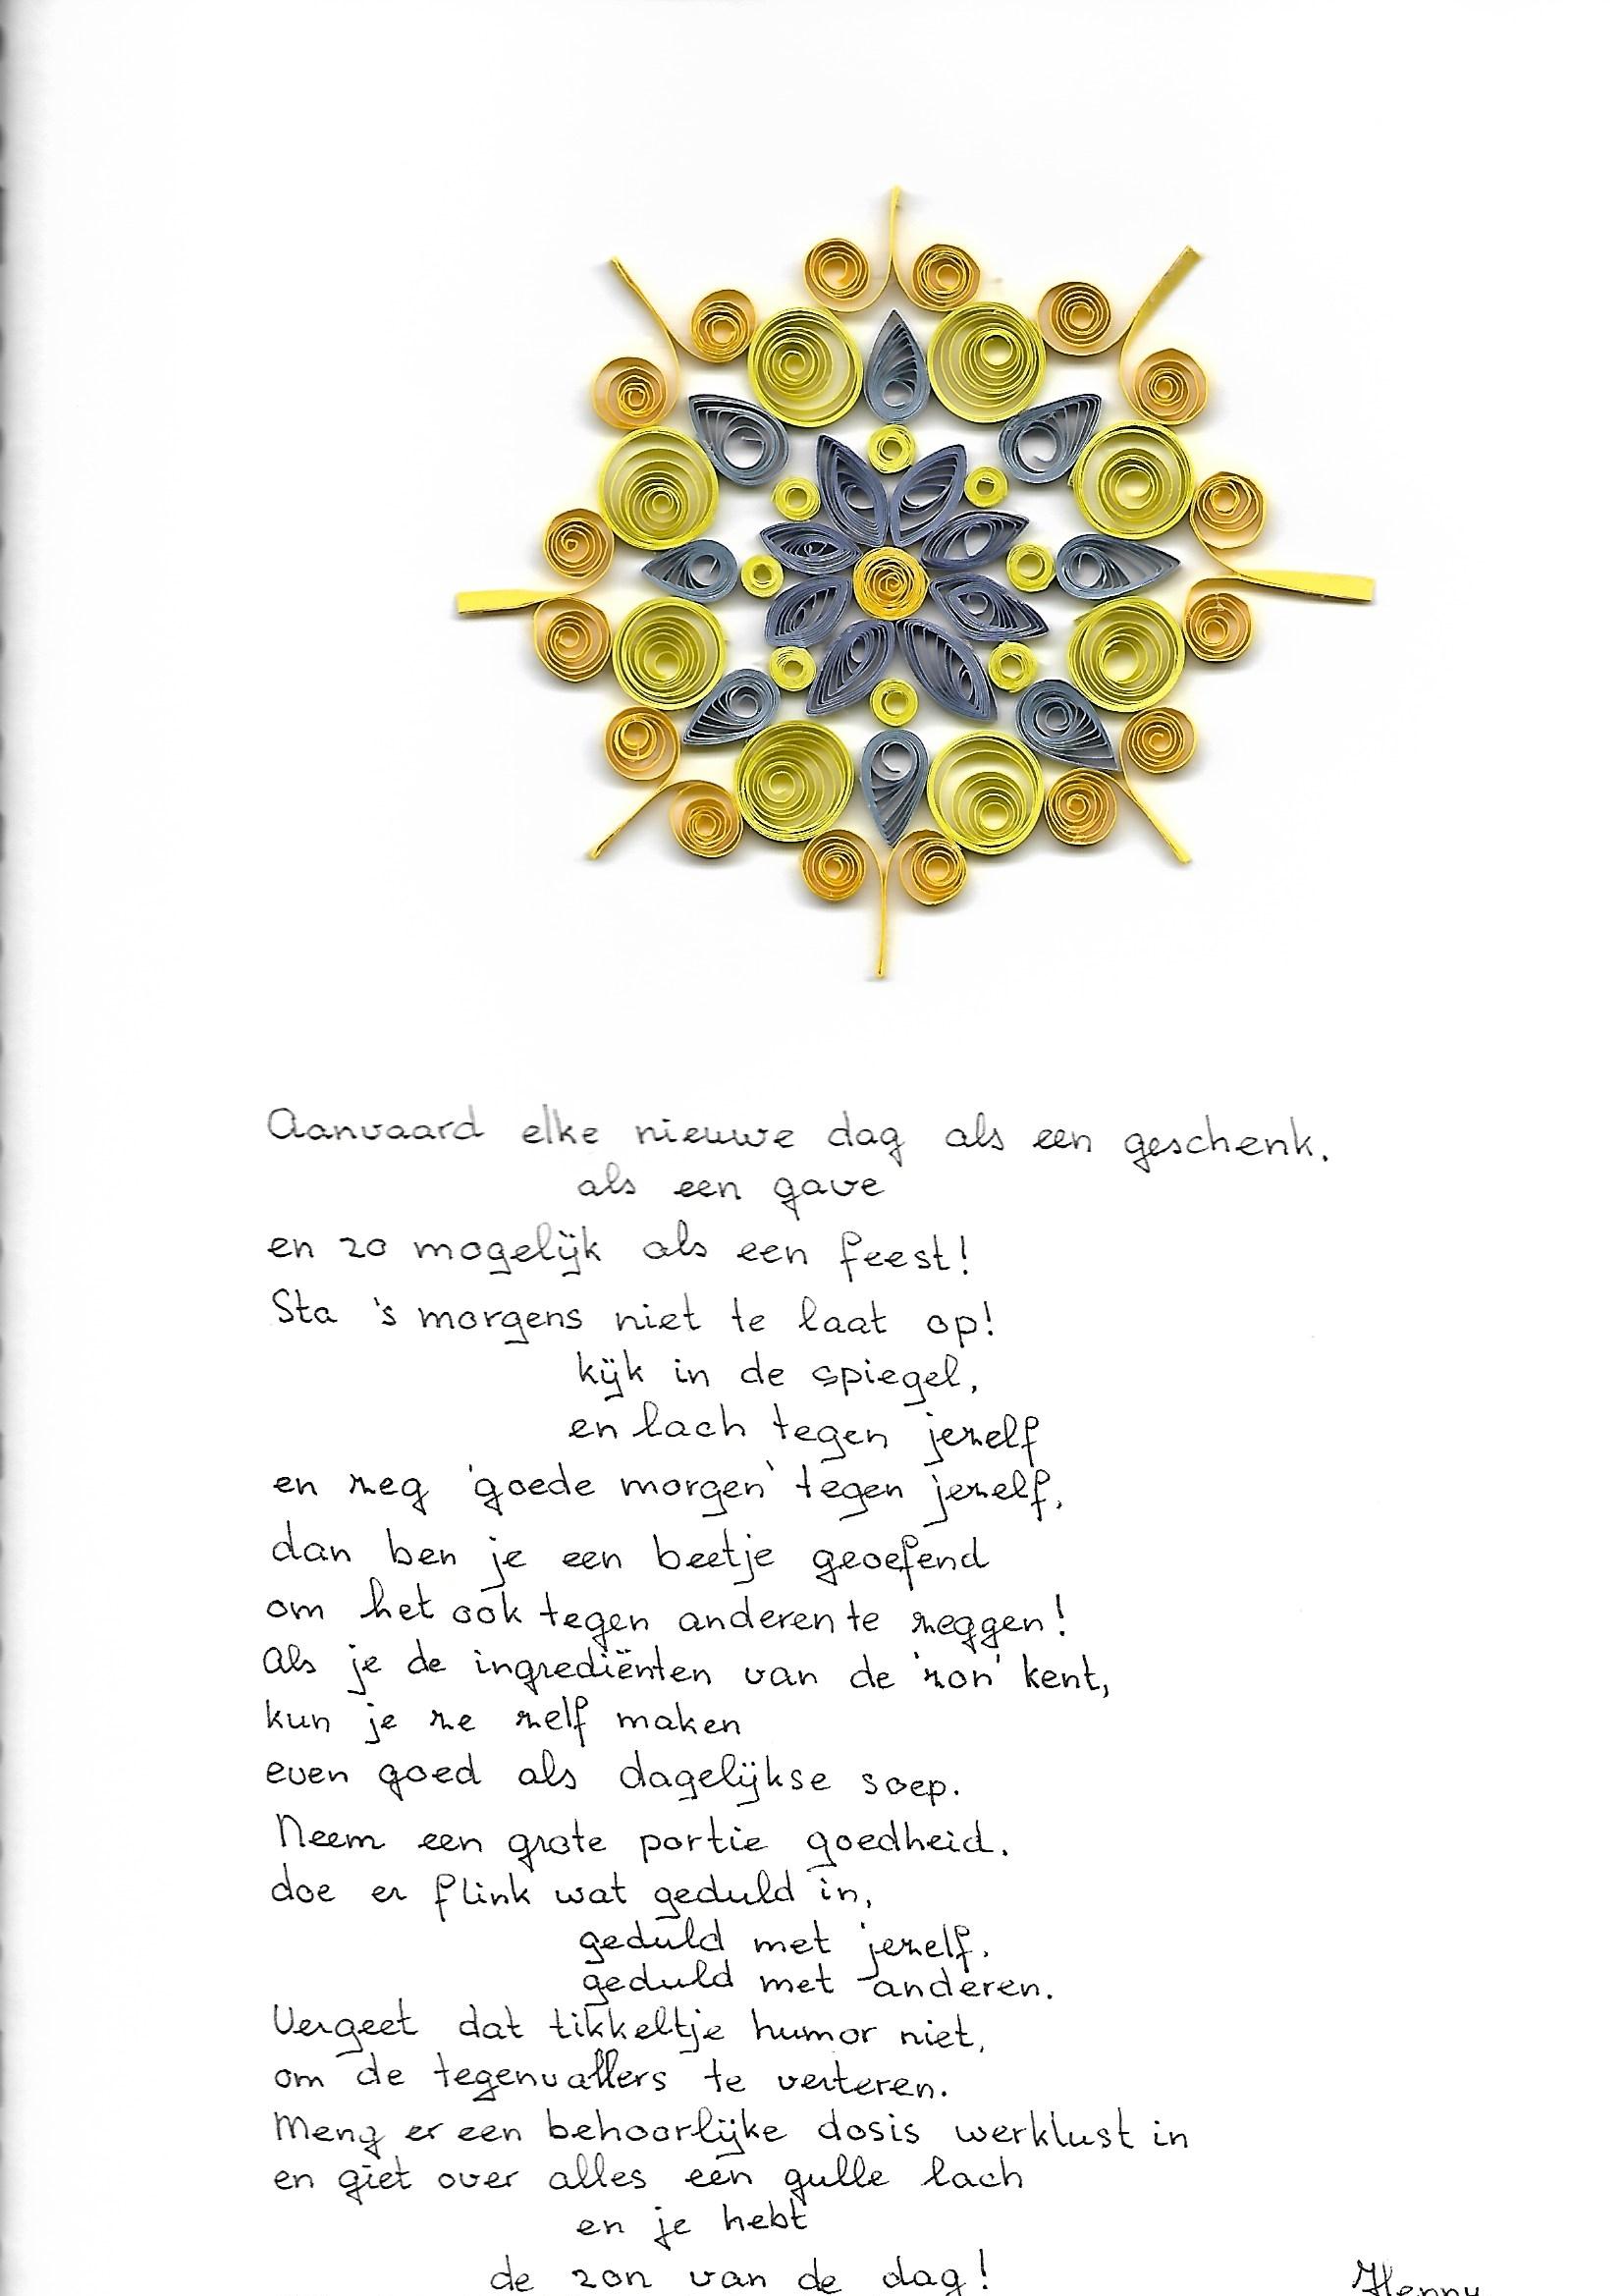 Aanvaard elke nieuwe dag als een geschenk,
als een gave
en zo mogelijk als een feest!
Sta 's morgens niet te laat op!
kijk in de spiegel,
en lach tegen jezelf
en zeg 'goede morgen' tegen jezelf,
dan ben je een beetje geoefend
om het ook tegen anderen te zeggen!
Als je de ingrediënten van de 'zon' kent,
kun je ze zelf maken
even goed als dagelijkse soep.
Neem een grote portie goedheid.
doe er flink wat geduld in,
geduld met jezelf.
geduld met anderen.
Vergeet dat tikkeltje humor niet,
om de tegenvallers te verteren.
Meng er een behoorlijke dosis werklust in
en giet over alles een gulle lach
en je hebt
de zon van de dag!
Henny